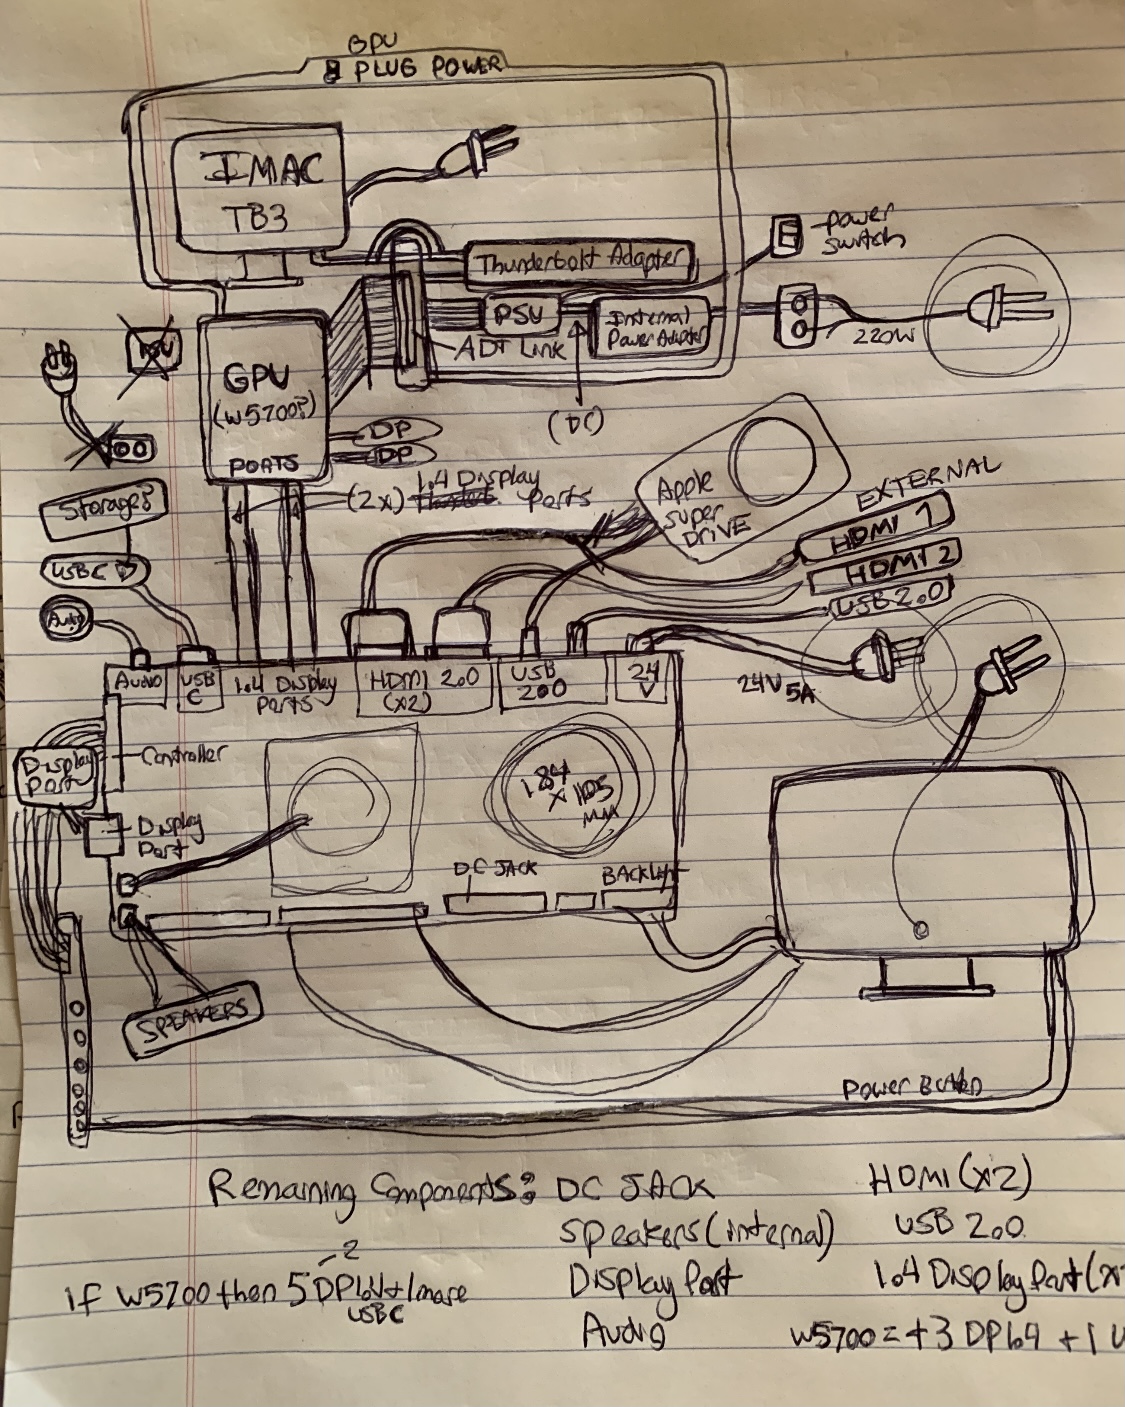 GPU
PLUG POWER
IMAC
TB3
Thunderbolt Adapter
PSU
Internal
Power Adapter
ADT Link
(DC)
Power
Switch
220W
PSU
GPU
(W5700?)
PORTS
DP
DP
(2x) 1.4 Display Ports
Storage?
USB C
Audio
Apple
Super
DRIVE
EXTERNAL
HDMI 1
HDMI 2
USB 2.0
24V 5A
Audio
USB
C
1.4 Display
Ports
HDMI 2.0
(x2)
USB
2.0
24
V
Display
Port
Controller
Display
Port
184
x 105
MM
DC JACK
BACKLIT
SPEAKERS
Power Board
Remaining Components: DC JACK
Speakers (internal)
Display Port
Audio
HDMI (x2)
USB 2.0
1.4 Display Port (x
W5700 = +3 DP 1.4 + 1 U
-2
if W5700 then 5 DP 1.4 + 1 more
USBC